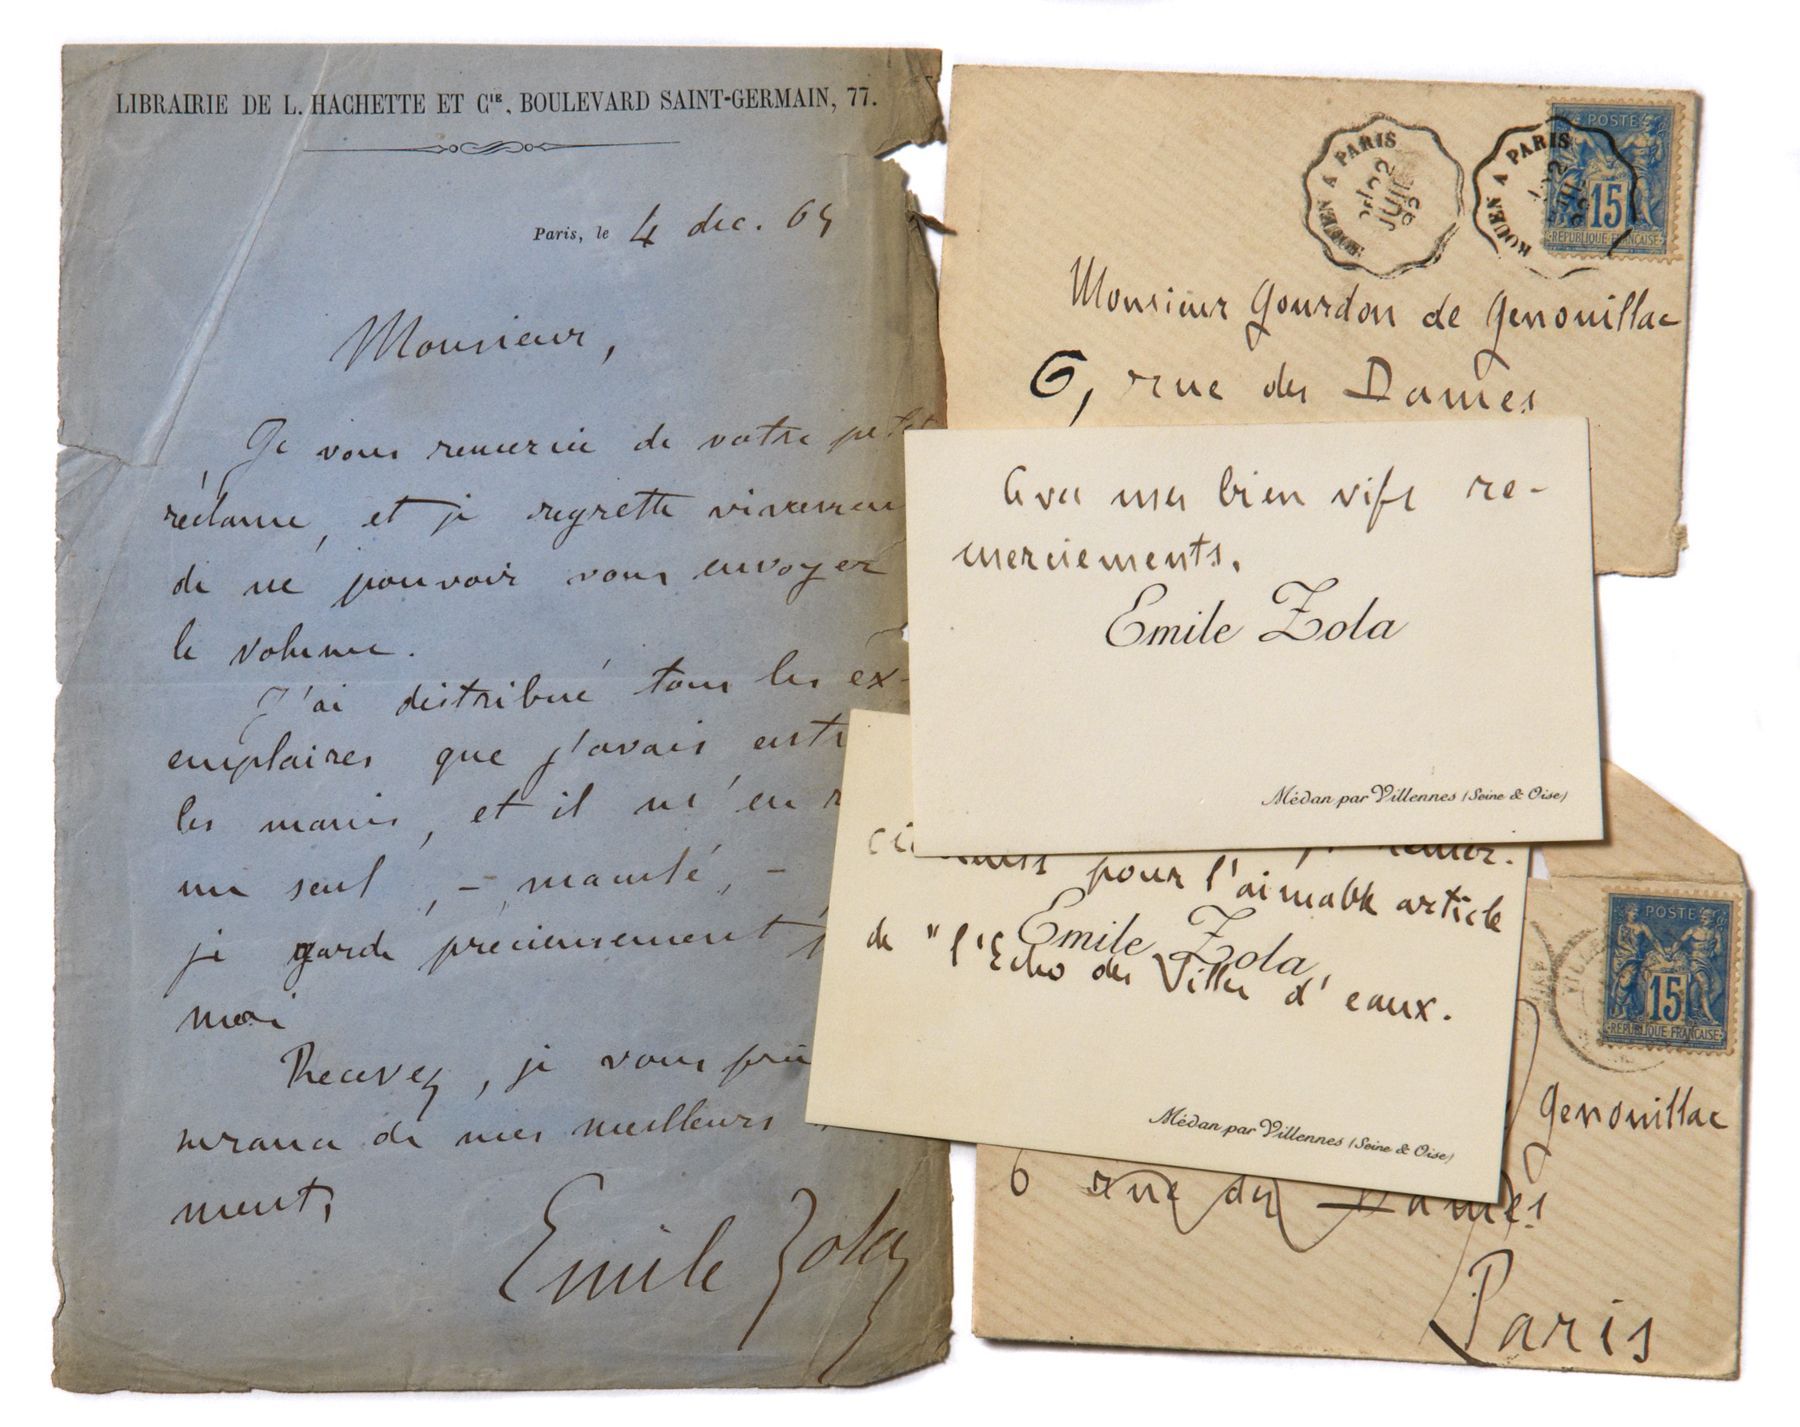 LIBRAIRIE DE L. HACHETTE ET Cⁱᵉ, BOULEVARD SAINT-GERMAIN, 77.
Paris, le 4 dec. 64
Monsieur,
Je vous remercie de votre petit
réclame, et je regrette vivemen
de ne pouvoir vous envoyer
le volume.
J'ai distribué tous les ex-
emplaires que j'avais entr
les mains, et il m'en r
un seul, - maculé, -
je garde précieusement
moi
Recevez, je vous prie
surance de mes meilleurs
ment,
Emile Zola
ROUEN A PARIS
22
JUIL
ROUEN A PARIS
22
POSTE
15
REPUBLIQUE FRANÇAISE
Monsieur Gourdon de Genouillac
6, rue des Dames
Avec mes bien vifs re-
merciements.
Emile Zola
Médan par Villennes (Seine & Oise)
pour l'aimable article
Emile Zola,
de "l'Echo des Villes d'eaux.
Médan par Villennes (Seine & Oise)
POSTE
15
REPUBLIQUE FRANÇAISE
Genouillac
6 rue des Dames
Paris